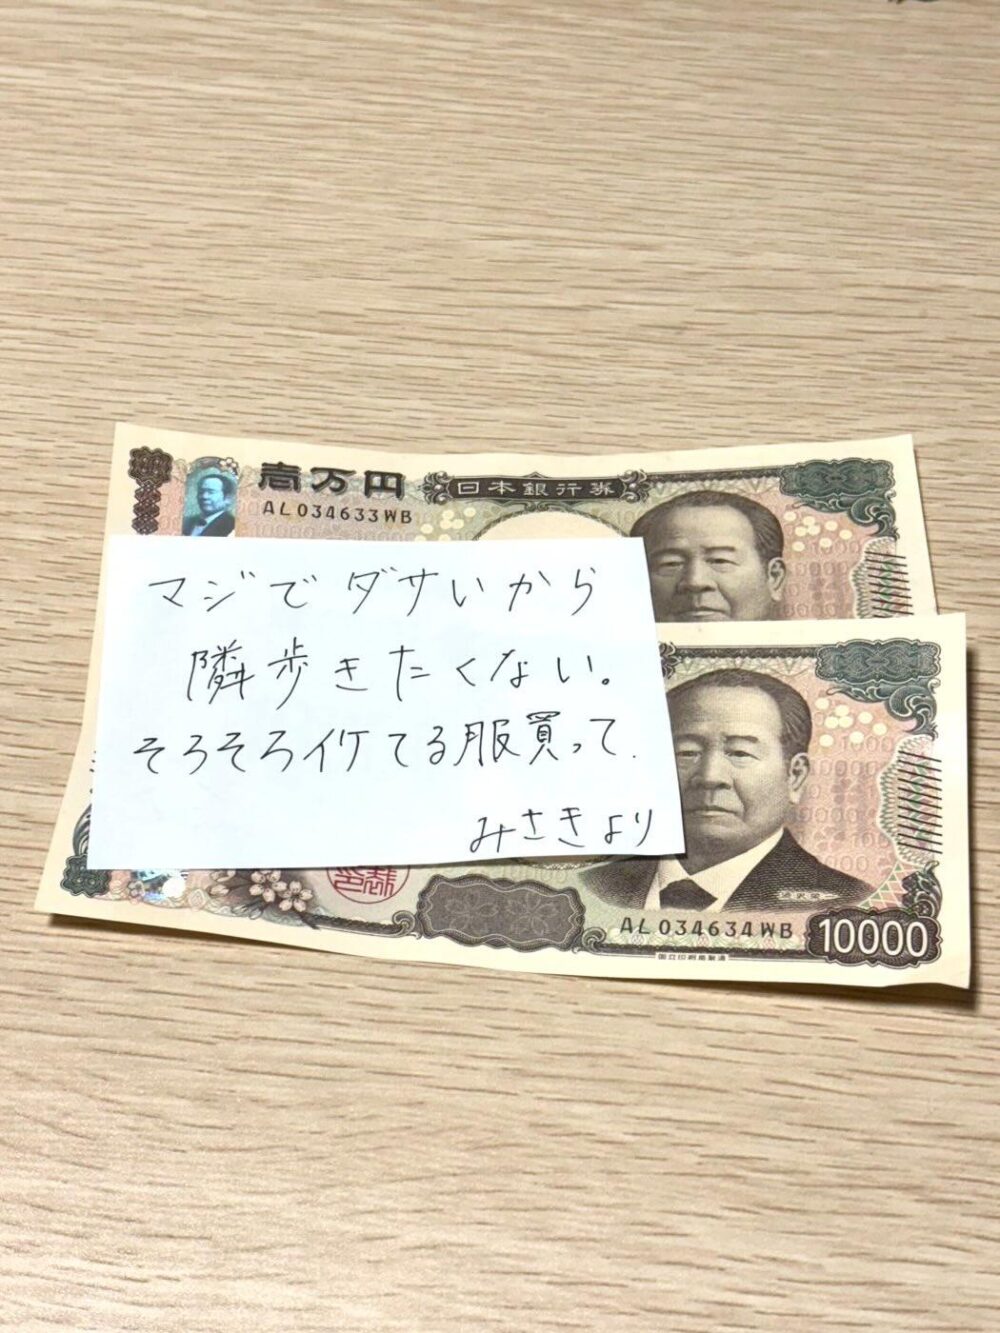 壱万円
日本銀行券
AL034633WB
マジでダサいから
隣歩きたくない。
そろそろイケてる服買って.
みさきより
渋沢栄一
AL034634WB
10000
国立印刷局製造